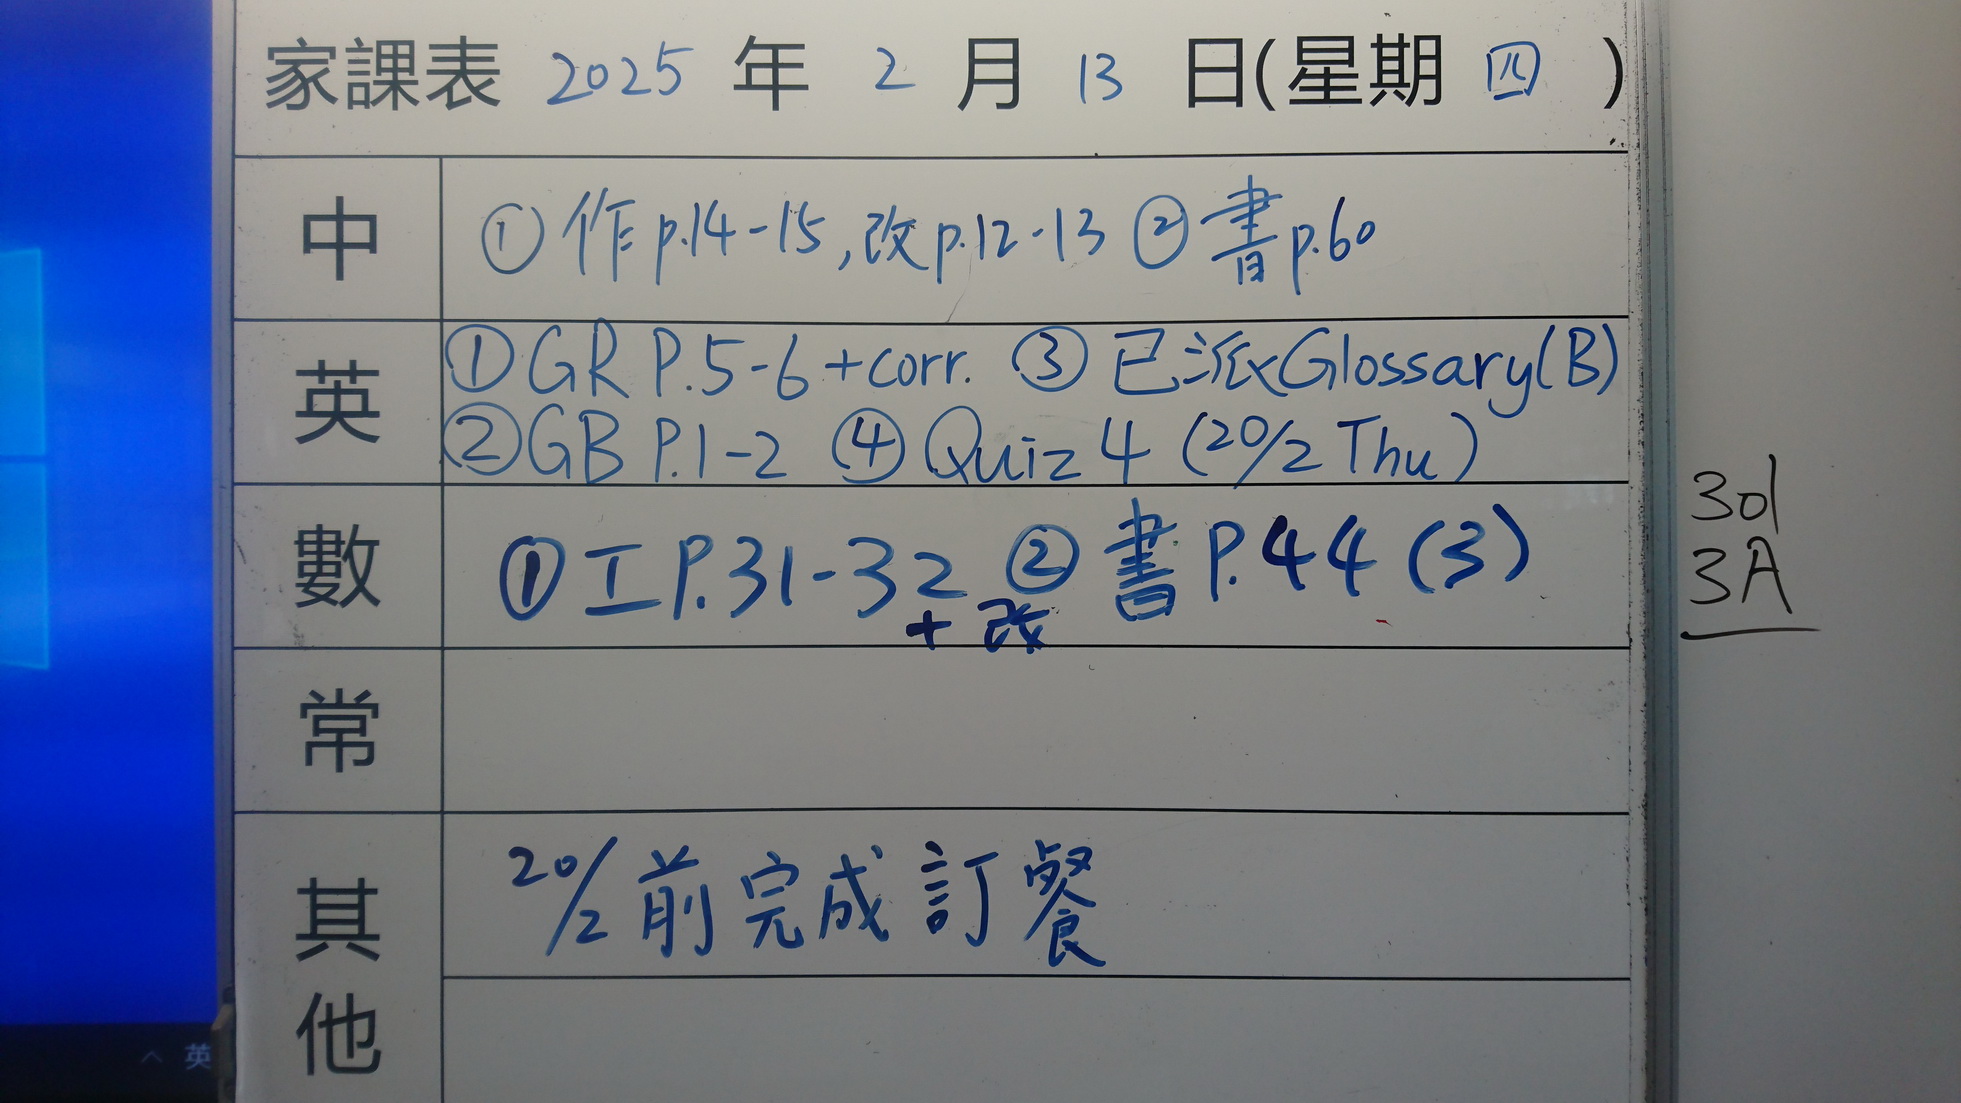 家課表 2025 年 2 月 13 日(星期 四 )
中 ①作p.14-15,改p.12-13 ②書p.60
英 ①GR P.5-6 +corr. ③已派Glossary(B)
②GB P.1-2 ④Quiz 4 (20/2 Thu)
數 ①工P.31-32 ②書P.44(3)
+改
常
其他 20/2前完成訂餐
301
3A
英